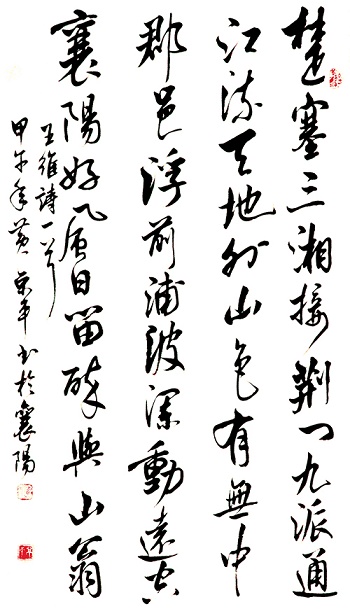 楚塞三湘接荆門九派通
江流天地外山色有無中
郡邑浮前浦波瀾動遠空
襄陽好風日留醉與山翁
王維詩一首
甲午年黄平書於襄陽